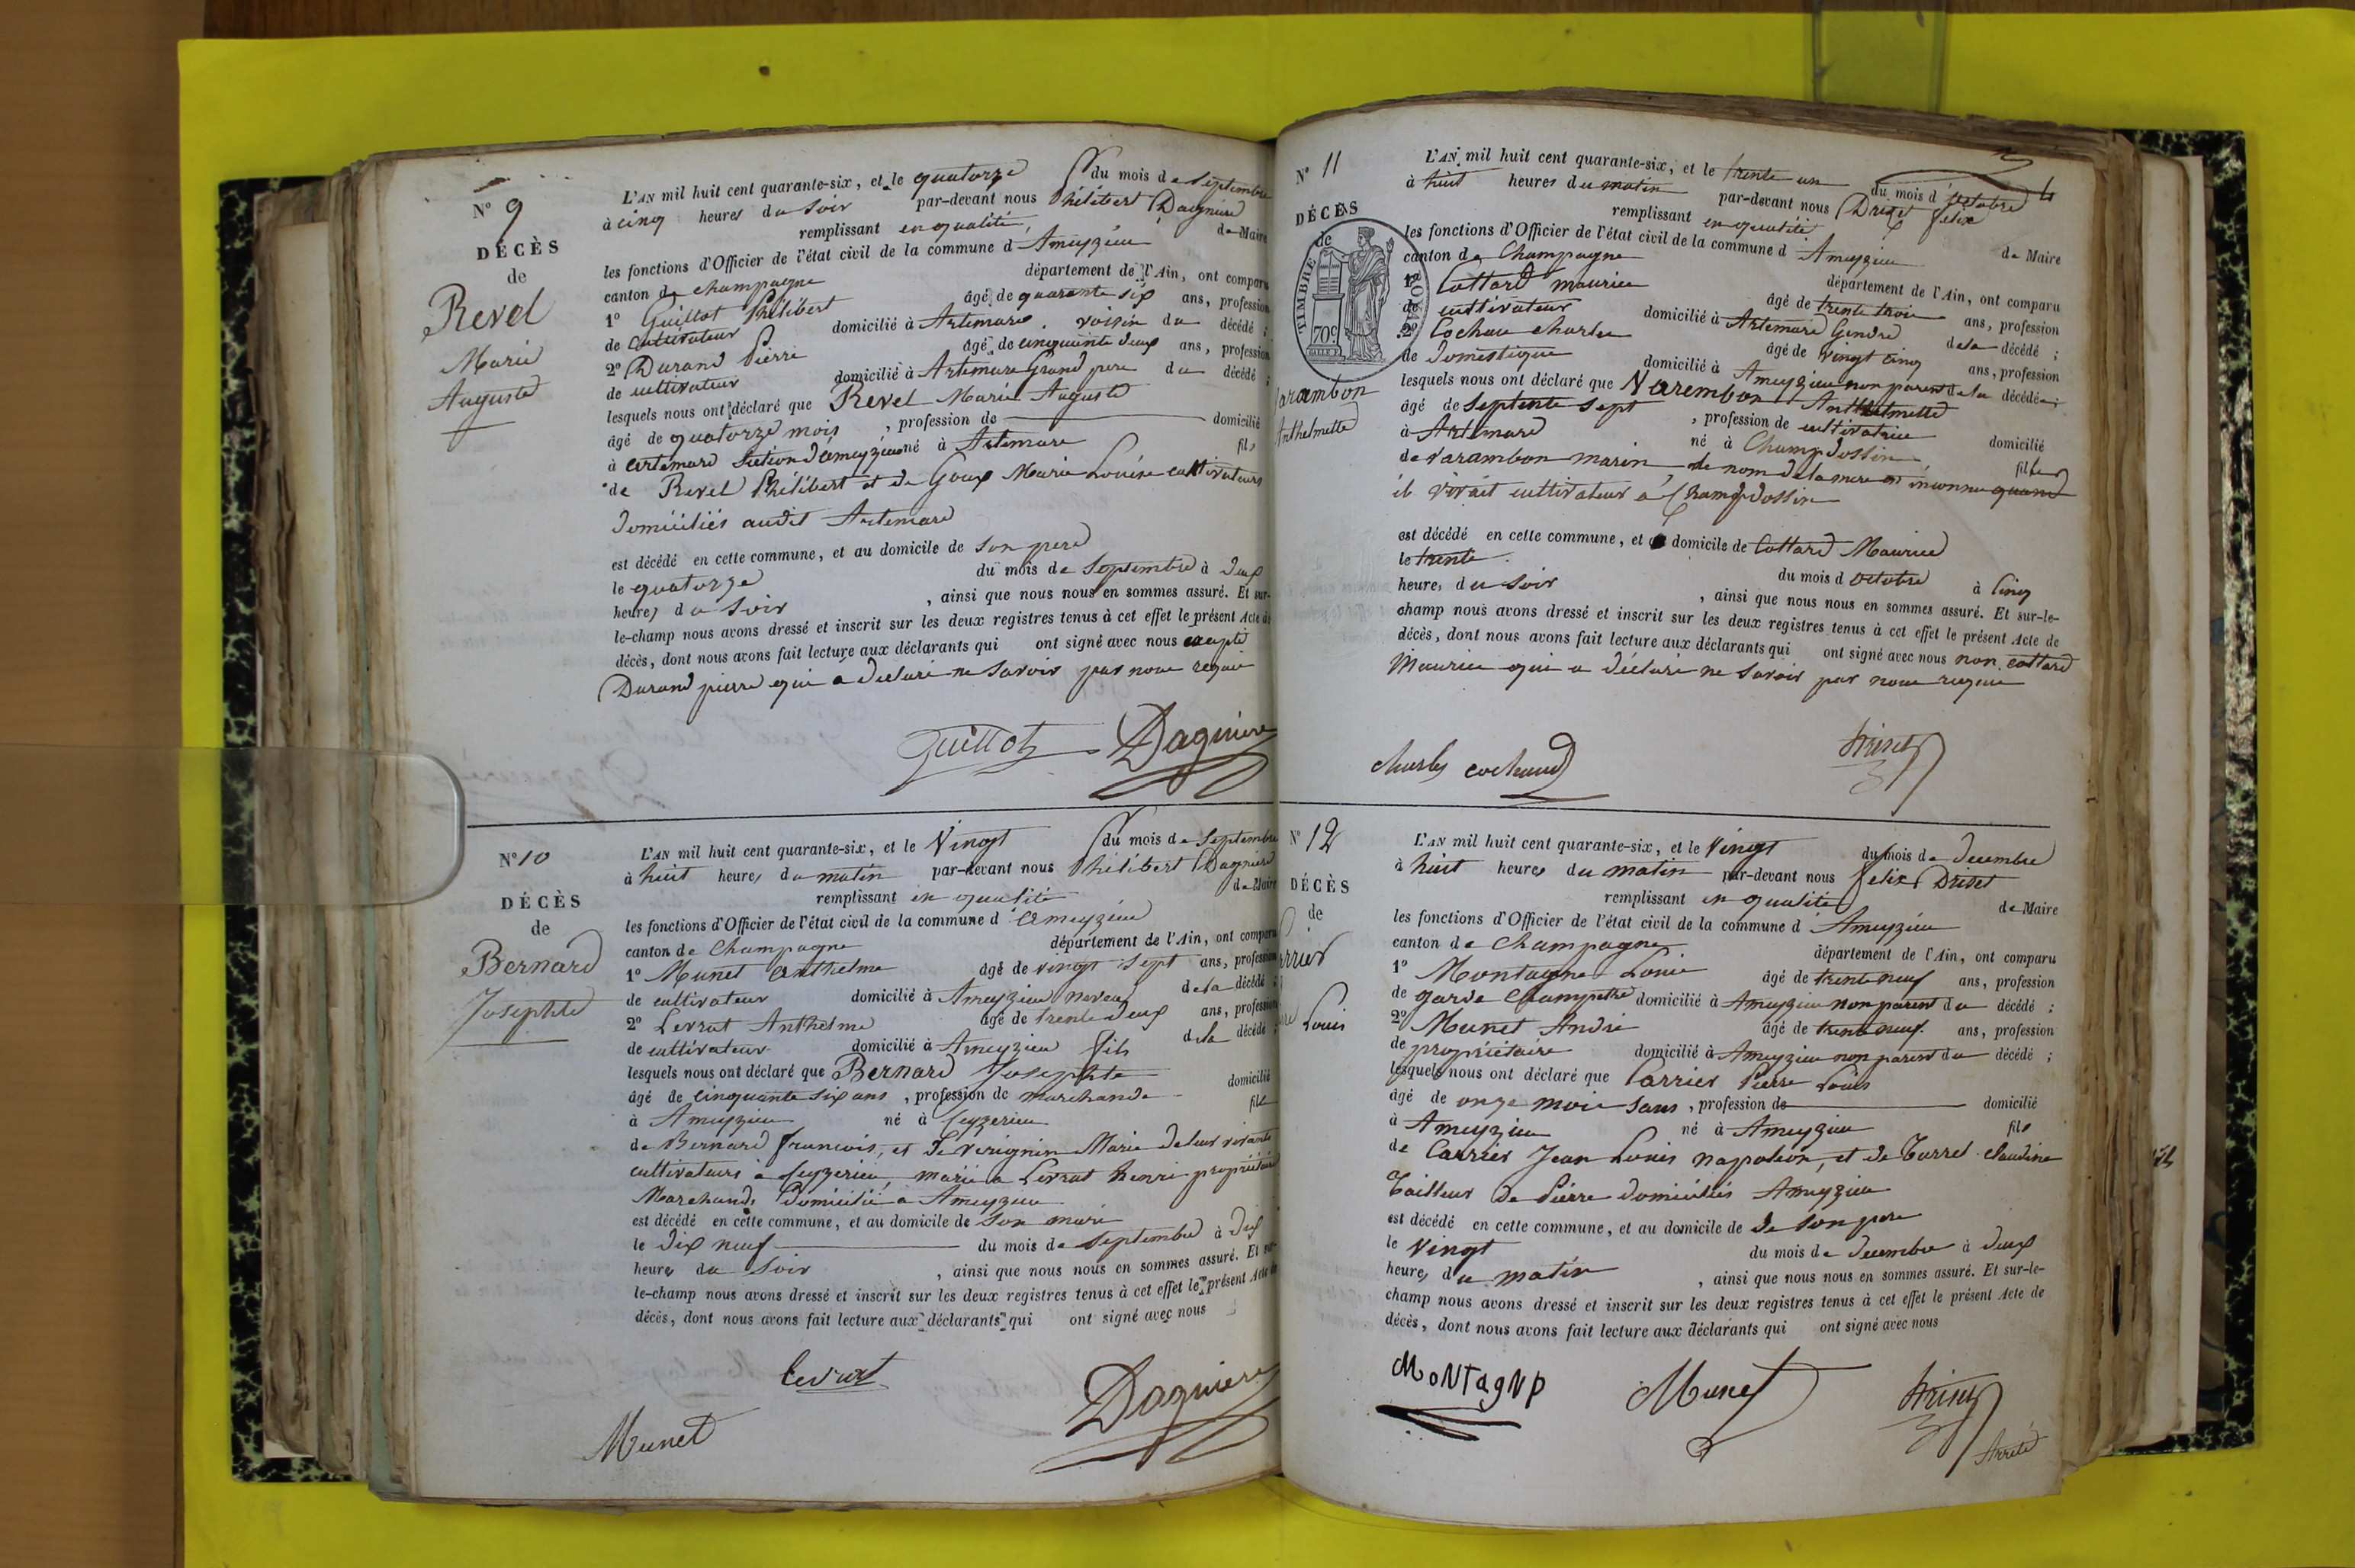 N° 9
DÉCÈS
de
Revel
Marie
Auguste
L'AN mil huit cent quarante-six, et le quatorze du mois de Septembre
à cinq heures du Soir par-devant nous Philibert Dagnière
remplissant en qualité de Maire
les fonctions d'Officier de l'état civil de la commune d'Ameyzieu
canton de champagne département de l'Ain, ont comparu
1° Guillot Philibert âgé de quarante six ans, profession
de cultivateur domicilié à Artemare, voisin du décédé;
2° Durand Pierre âgé de cinquante deux ans, profession
de cultivateur domicilié à Artemare Grand pere du décédé;
lesquels nous ont déclaré que Revel Marie Auguste
âgé de quatorze mois, profession de domicilié
à artemare Section d'ameyzieu né à Artemare fils
de Revel Philibert et de Goux Marie Louise cultivateurs
domiciliés audit Artemare
est décédé en cette commune, et au domicile de son pere
le quatorze du mois de Septembre à deux
heures du Soir, ainsi que nous nous en sommes assuré. Et sur-
le-champ nous avons dressé et inscrit sur les deux registres tenus à cet effet le présent Acte de
décès, dont nous avons fait lecture aux déclarants qui ont signé avec nous excepté
Durand pierre qui a déclaré ne savoir par nous requis
Guillot Dagnière
N° 10
DÉCÈS
de
Bernard
Josephte
L'AN mil huit cent quarante-six, et le Vingt du mois de Septembre
à huit heures du matin par-devant nous Philibert Dagnière
remplissant en qualité de Maire
les fonctions d'Officier de l'état civil de la commune d'ameyzieu
canton de Champagne département de l'Ain, ont comparu
1° Munet anthelme âgé de vingt Sept ans, profession
de cultivateur domicilié à Ameyzieu neveu de la décédé;
2° Levrat Anthelme âgé de trente deux ans, profession
de cultivateur domicilié à Ameyzieu fils de la décédé;
lesquels nous ont déclaré que Bernard Josephte
âgé de cinquante six ans, profession de marchande domicilié
à Ameyzieu né à Ceyzerieu fille
de Bernard francois, et de Verignin Marie de leur vivant
cultivateurs à Ceyzerieu, marié a Levrat henri propriétaire
Marchand, domicilié a Ameyzieu
est décédé en cette commune, et au domicile de son mari
le dix neuf du mois de Septembre à dix
heures du Soir, ainsi que nous nous en sommes assuré. Et sur-
le-champ nous avons dressé et inscrit sur les deux registres tenus à cet effet le présent Acte de
décès, dont nous avons fait lecture aux déclarants qui ont signé avec nous
Levrat
Munet Dagnière
N° 11
DÉCÈS
de
TIMBRE ROYAL
70c
Varambon
Anthelmette
L'AN mil huit cent quarante-six, et le trente un du mois d'octobre
à huit heures du matin par-devant nous Driset felix
remplissant en qualité de Maire
les fonctions d'Officier de l'état civil de la commune d'Ameyzieu
canton de Champagne département de l'Ain, ont comparu
1° Cottard maurice âgé de trente trois ans, profession
de cultivateur domicilié à Artemare Gendre de la décédé;
2° Cochau charles âgé de vingt cinq ans, profession
de Domestique domicilié à Ameyzieu non parent de la décédée;
lesquels nous ont déclaré que Varembon Anthelmette
âgé de Septente Sept, profession de cultivatrice domicilié
à Artemare né à Champdossin fille
de varambon marin, le nom de la mere est inconnu quand
il vivait cultivateur a Champdossin
est décédé en cette commune, et domicile de Cottard Maurice
le trente du mois d octobre à Cinq
heures du Soir, ainsi que nous nous en sommes assuré. Et sur-le-
champ nous avons dressé et inscrit sur les deux registres tenus à cet effet le présent Acte de
décès, dont nous avons fait lecture aux déclarants qui ont signé avec nous non cottard
Maurice qui a déclaré ne Savoir par nous requis
Charles cochaud Driset
N° 12
DÉCÈS
de
Louis
L'AN mil huit cent quarante-six, et le Vingt du mois de Decembre
à huit heures du matin par-devant nous felix Driset
remplissant en qualité de Maire
les fonctions d'Officier de l'état civil de la commune d'Ameyzieu
canton de Champagne département de l'Ain, ont comparu
1° Montagne Louis âgé de trente neuf ans, profession
de garde Champetre domicilié à Ameyzieu non parent du décédé;
2° Munet André âgé de trente neuf ans, profession
de propriétaire domicilié à Ameyzieu non parent du décédé;
lesquels nous ont déclaré que Carrier Pierre Louis
âgé de onze mois sans, profession de domicilié
à Ameyzieu né à Ameyzieu fils
de Carrier Jean Louis napoléon, et de Turrel claudine
Tailleur de Pierre domiciliés Ameyzieu
est décédé en cette commune, et au domicile de de son pere
le Vingt du mois de Decembre à deux
heures du matin, ainsi que nous nous en sommes assuré. Et sur-le-
champ nous avons dressé et inscrit sur les deux registres tenus à cet effet le présent Acte de
décès, dont nous avons fait lecture aux déclarants qui ont signé avec nous
MoNTagNp Munet Driset
Arrêté